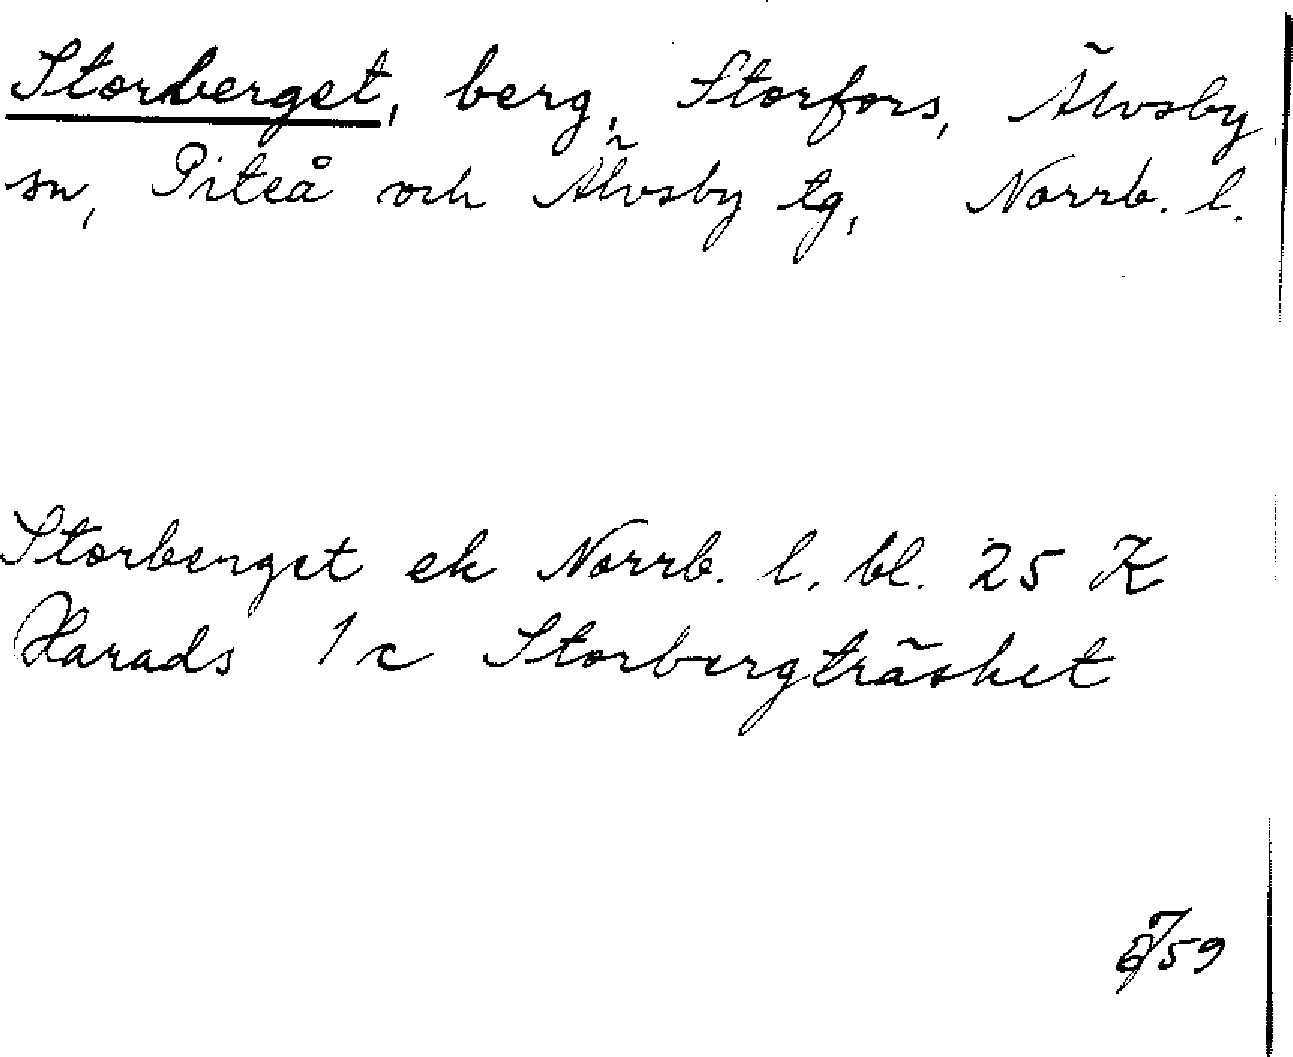 Storberget, berg, Storfors, Älvsby
sn, Piteå och Älvsby tg, Norrb. l.
Storberget ek Norrb. l. bl. 25 K
Harads 1 c Storbergträsket
59